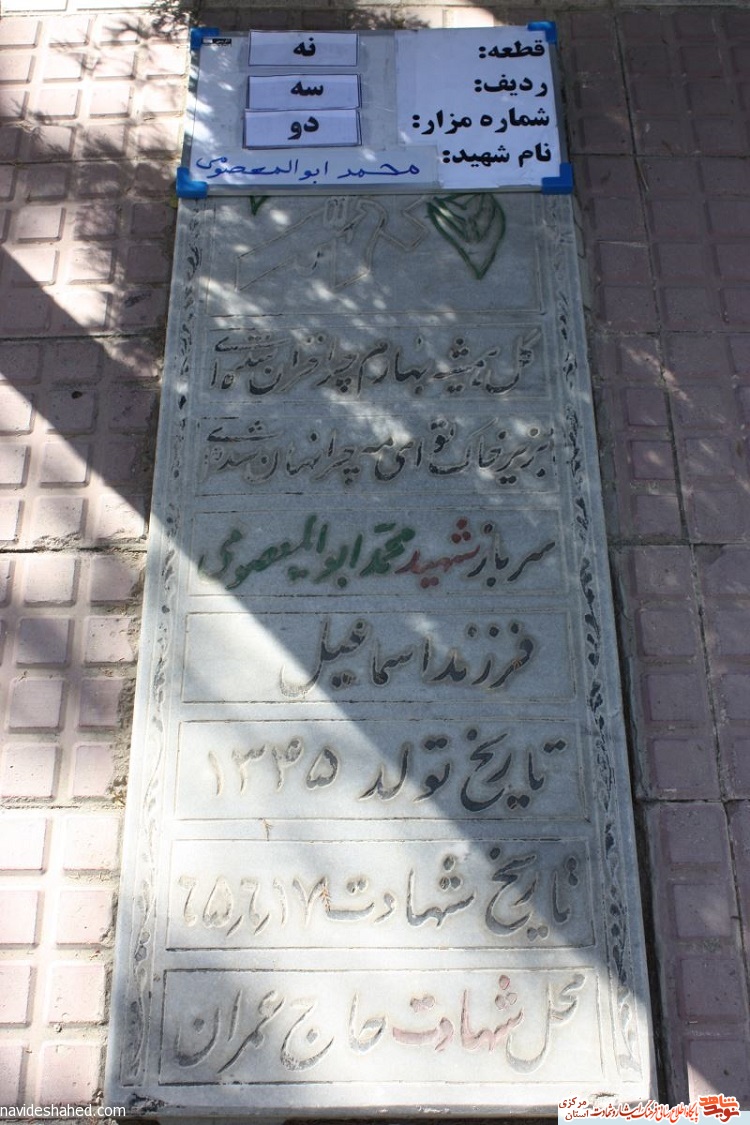 قطعه: نه
ردیف: سه
شماره مزار: دو
نام شهید: محمد ابوالمعصومی
گل همیشه بهارم چرا خزان شده‌ای
بزیر خاک تو ای مه چرا نهان شده‌ای
سرباز شهید محمد ابوالمعصومی
فرزند اسماعیل
تاریخ تولد ۱۳۴۵
تاریخ شهادت ۶۵٫۶٫۱۷
محل شهادت حاج عمران
navideshahed.com
نوید شاهد پایگاه اطلاع رسانی فرهنگ ایثار و شهادت استان مرکزی